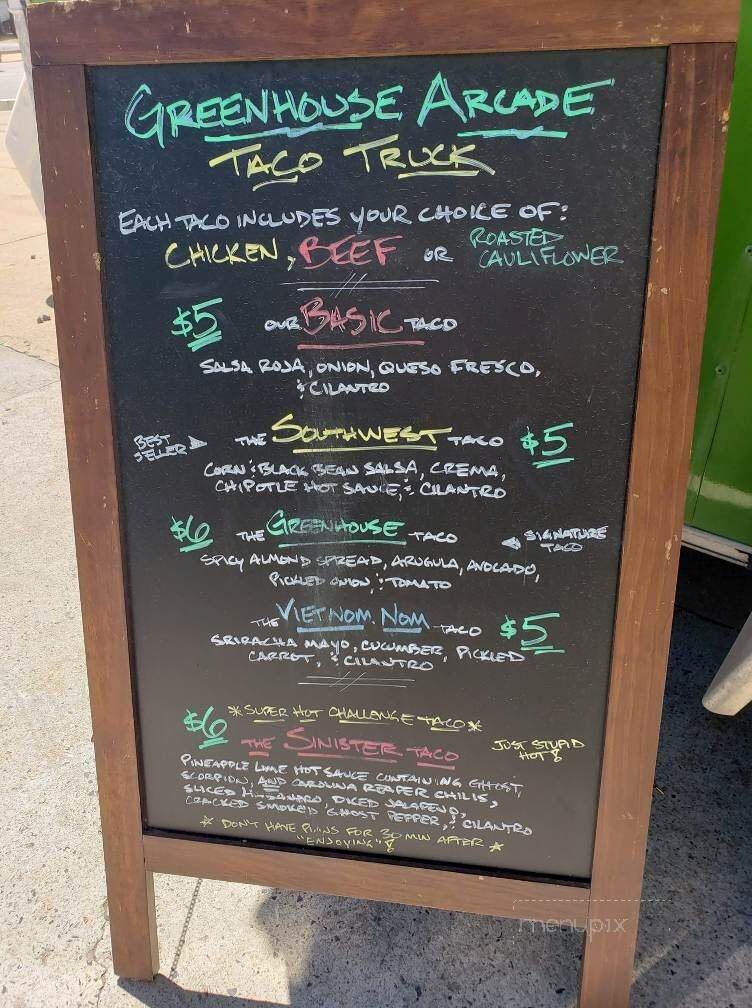 GREENHOUSE ARCADE
TACO TRUCK
EACH TACO INCLUDES YOUR CHOICE OF:
CHICKEN, BEEF OR ROASTED CAULIFLOWER
$5 OUR BASIC TACO
SALSA ROJA, ONION, QUESO FRESCO,
& CILANTRO
BEST SELLER THE SOUTHWEST TACO $5
CORN & BLACK BEAN SALSA, CREMA,
CHIPOTLE HOT SAUCE, & CILANTRO
$6 THE GREENHOUSE TACO SIGNATURE TACO
SPICY ALMOND SPREAD, ARUGULA, AVOCADO,
PICKLED ONION & TOMATO
THE VIETNOM NOM TACO $5
SRIRACHA MAYO, CUCUMBER, PICKLED
CARROT, & CILANTRO
$6 *SUPER HOT CHALLENGE TACO*
THE SINISTER TACO JUST STUPID HOT!
PINEAPPLE LIME HOT SAUCE CONTAINING GHOST,
SCORPION, AND CAROLINA REAPER CHILIS,
SLICED HABANERO, DICED JALAPENO,
CRACKED SMOKED GHOST PEPPER, & CILANTRO
* DON'T HAVE PLANS FOR 30 MIN AFTER *
"ENJOYING"!
menupix